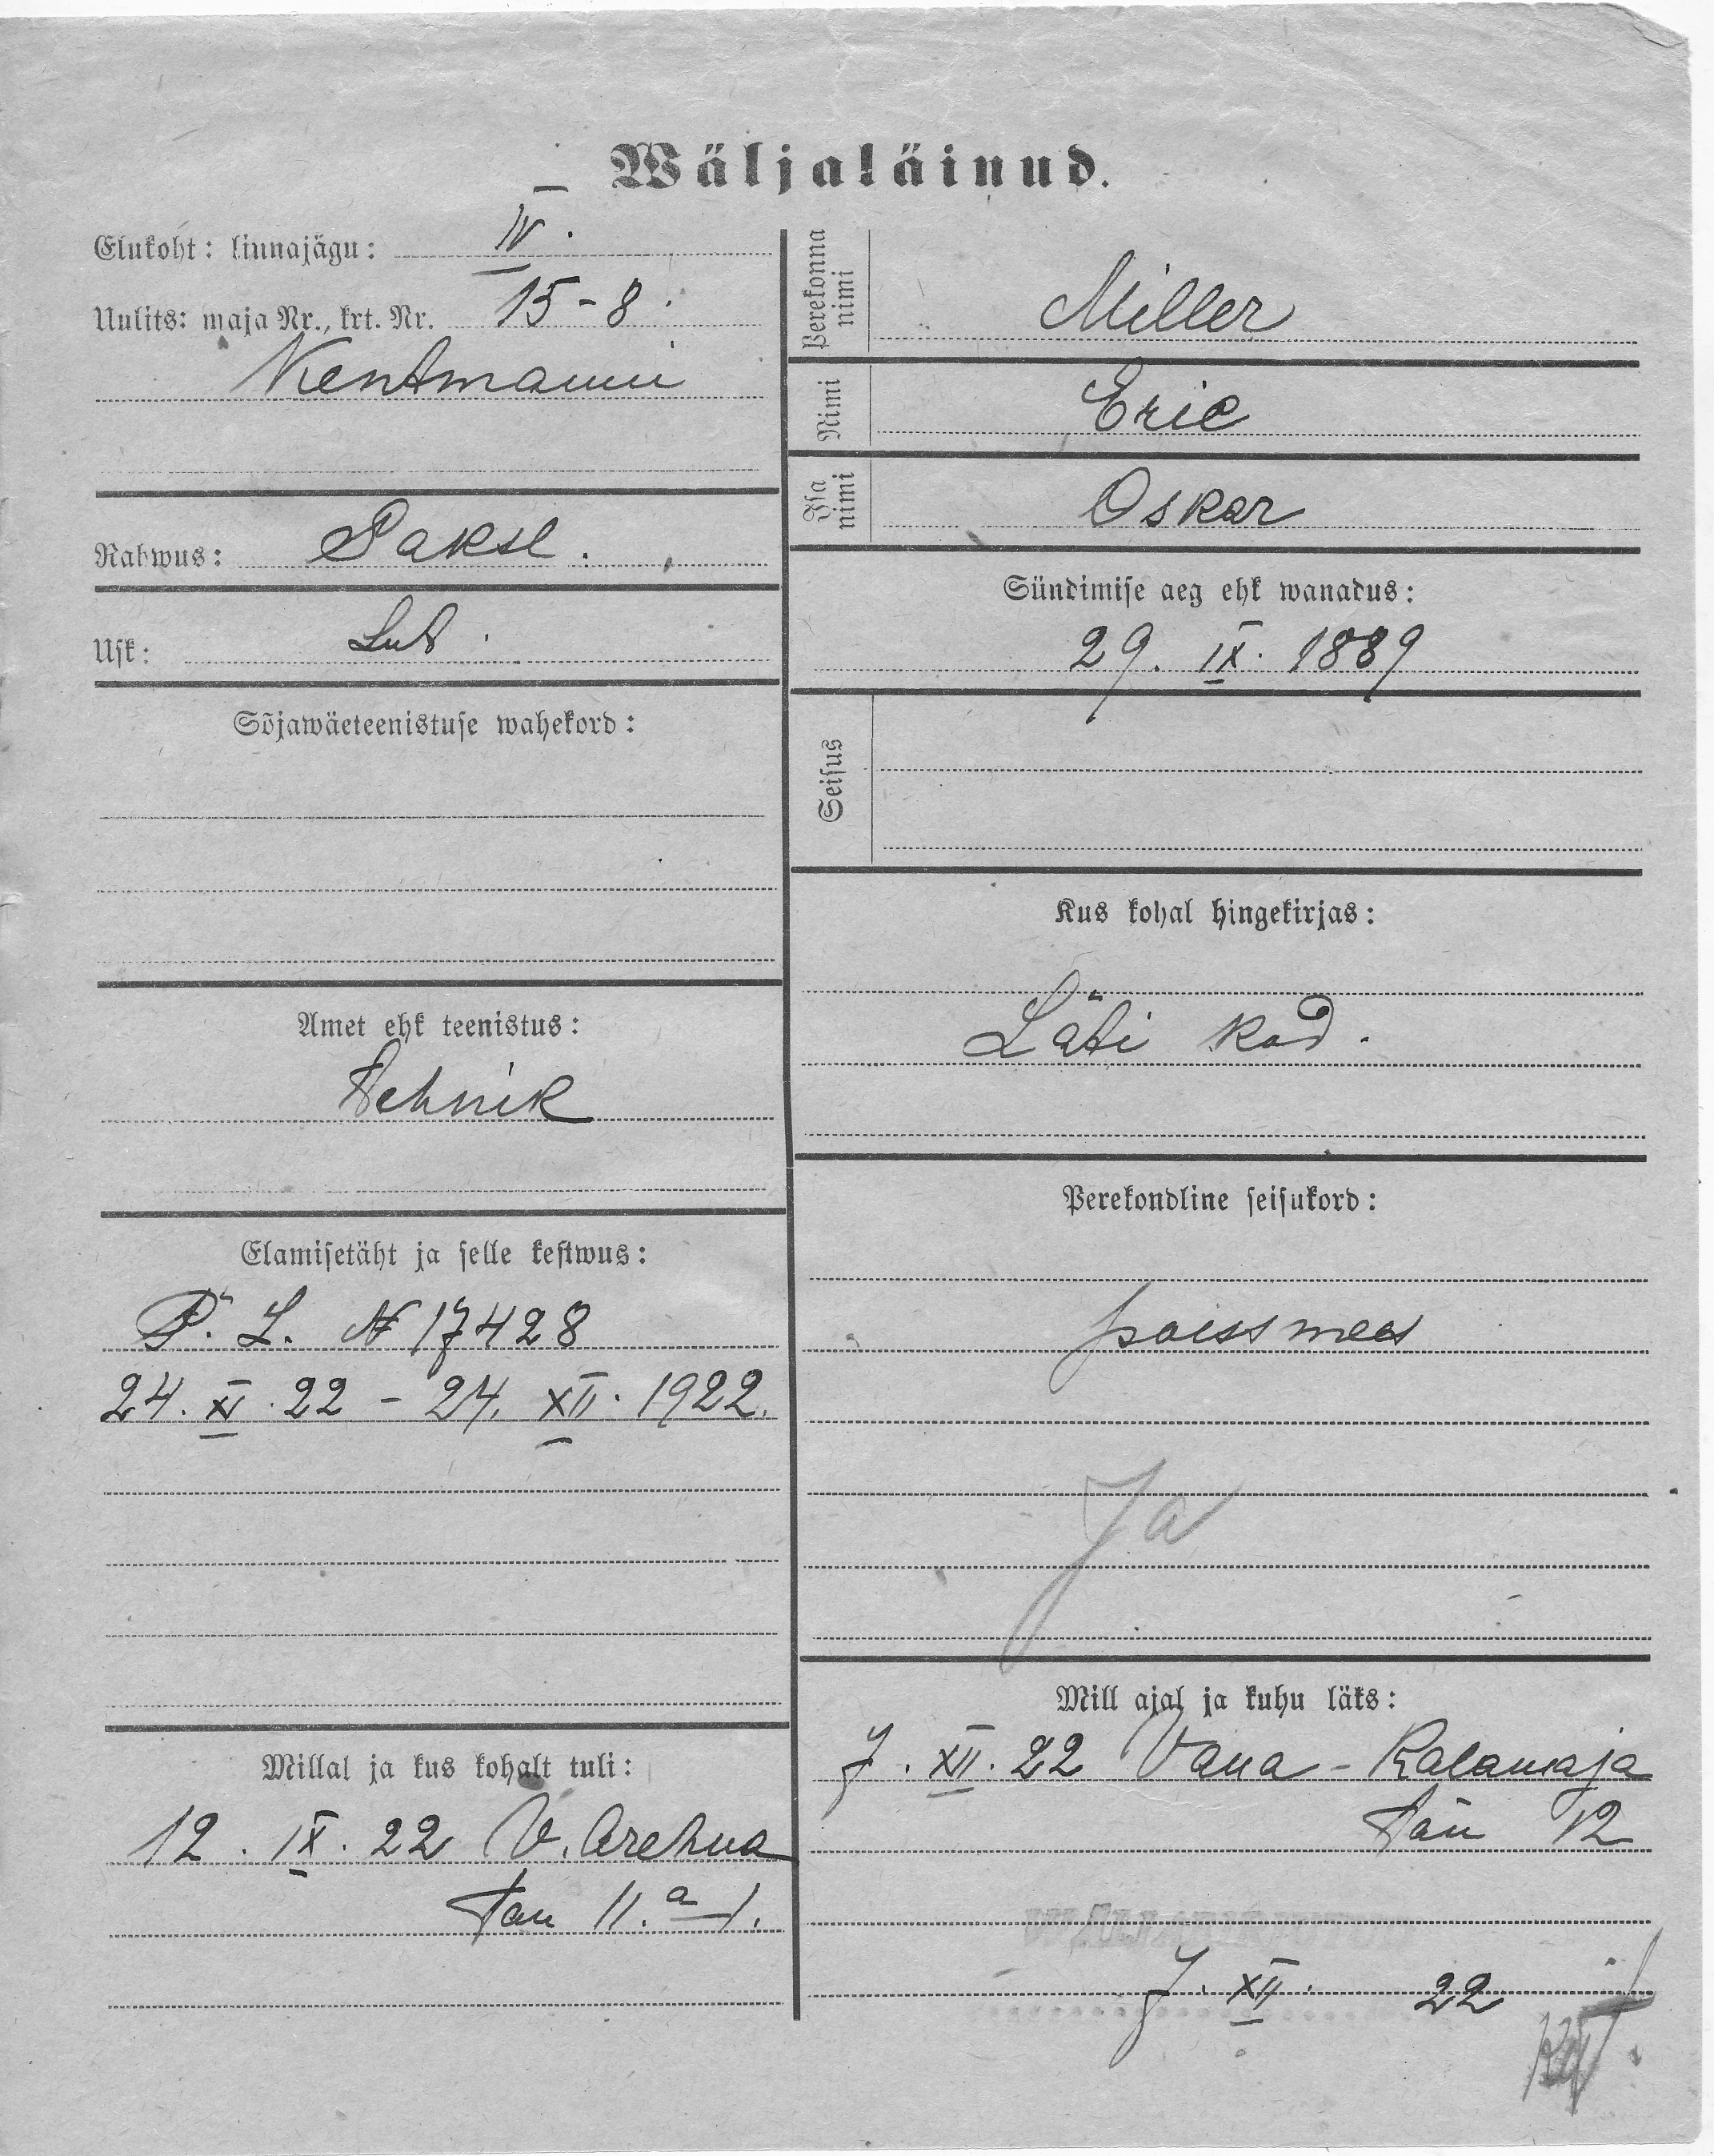 Wäljaläinud.
Elukoht: linnajägu: IV.
Uulits: maja Nr., krt. Nr. 15-8
Kentmanni
Rahwus: Saksl.
Usk: Lut.
Sõjawäeteenistuse wahekord:
Amet ehk teenistus:
Tehnik
Elamisetäht ja selle kestwus:
P. L. № 17428
24. XI. 22 - 24. XII. 1922.
Millal ja kus kohalt tuli:
12. IX. 22 V.
tän 11.a-1.
Perekonna nimi
Miller
Nimi
Eric
Isa nimi
Oskar
Sündimise aeg ehk wanadus:
29. IX. 1889
Seisus
Kus kohal hingekirjas:
Läti kod.
Perekondline seisukord:
poissmees
Ja
Mill ajal ja kuhu läks:
7. XII. 22 Vana-Kalamaja
tän 12
7. XII. 22